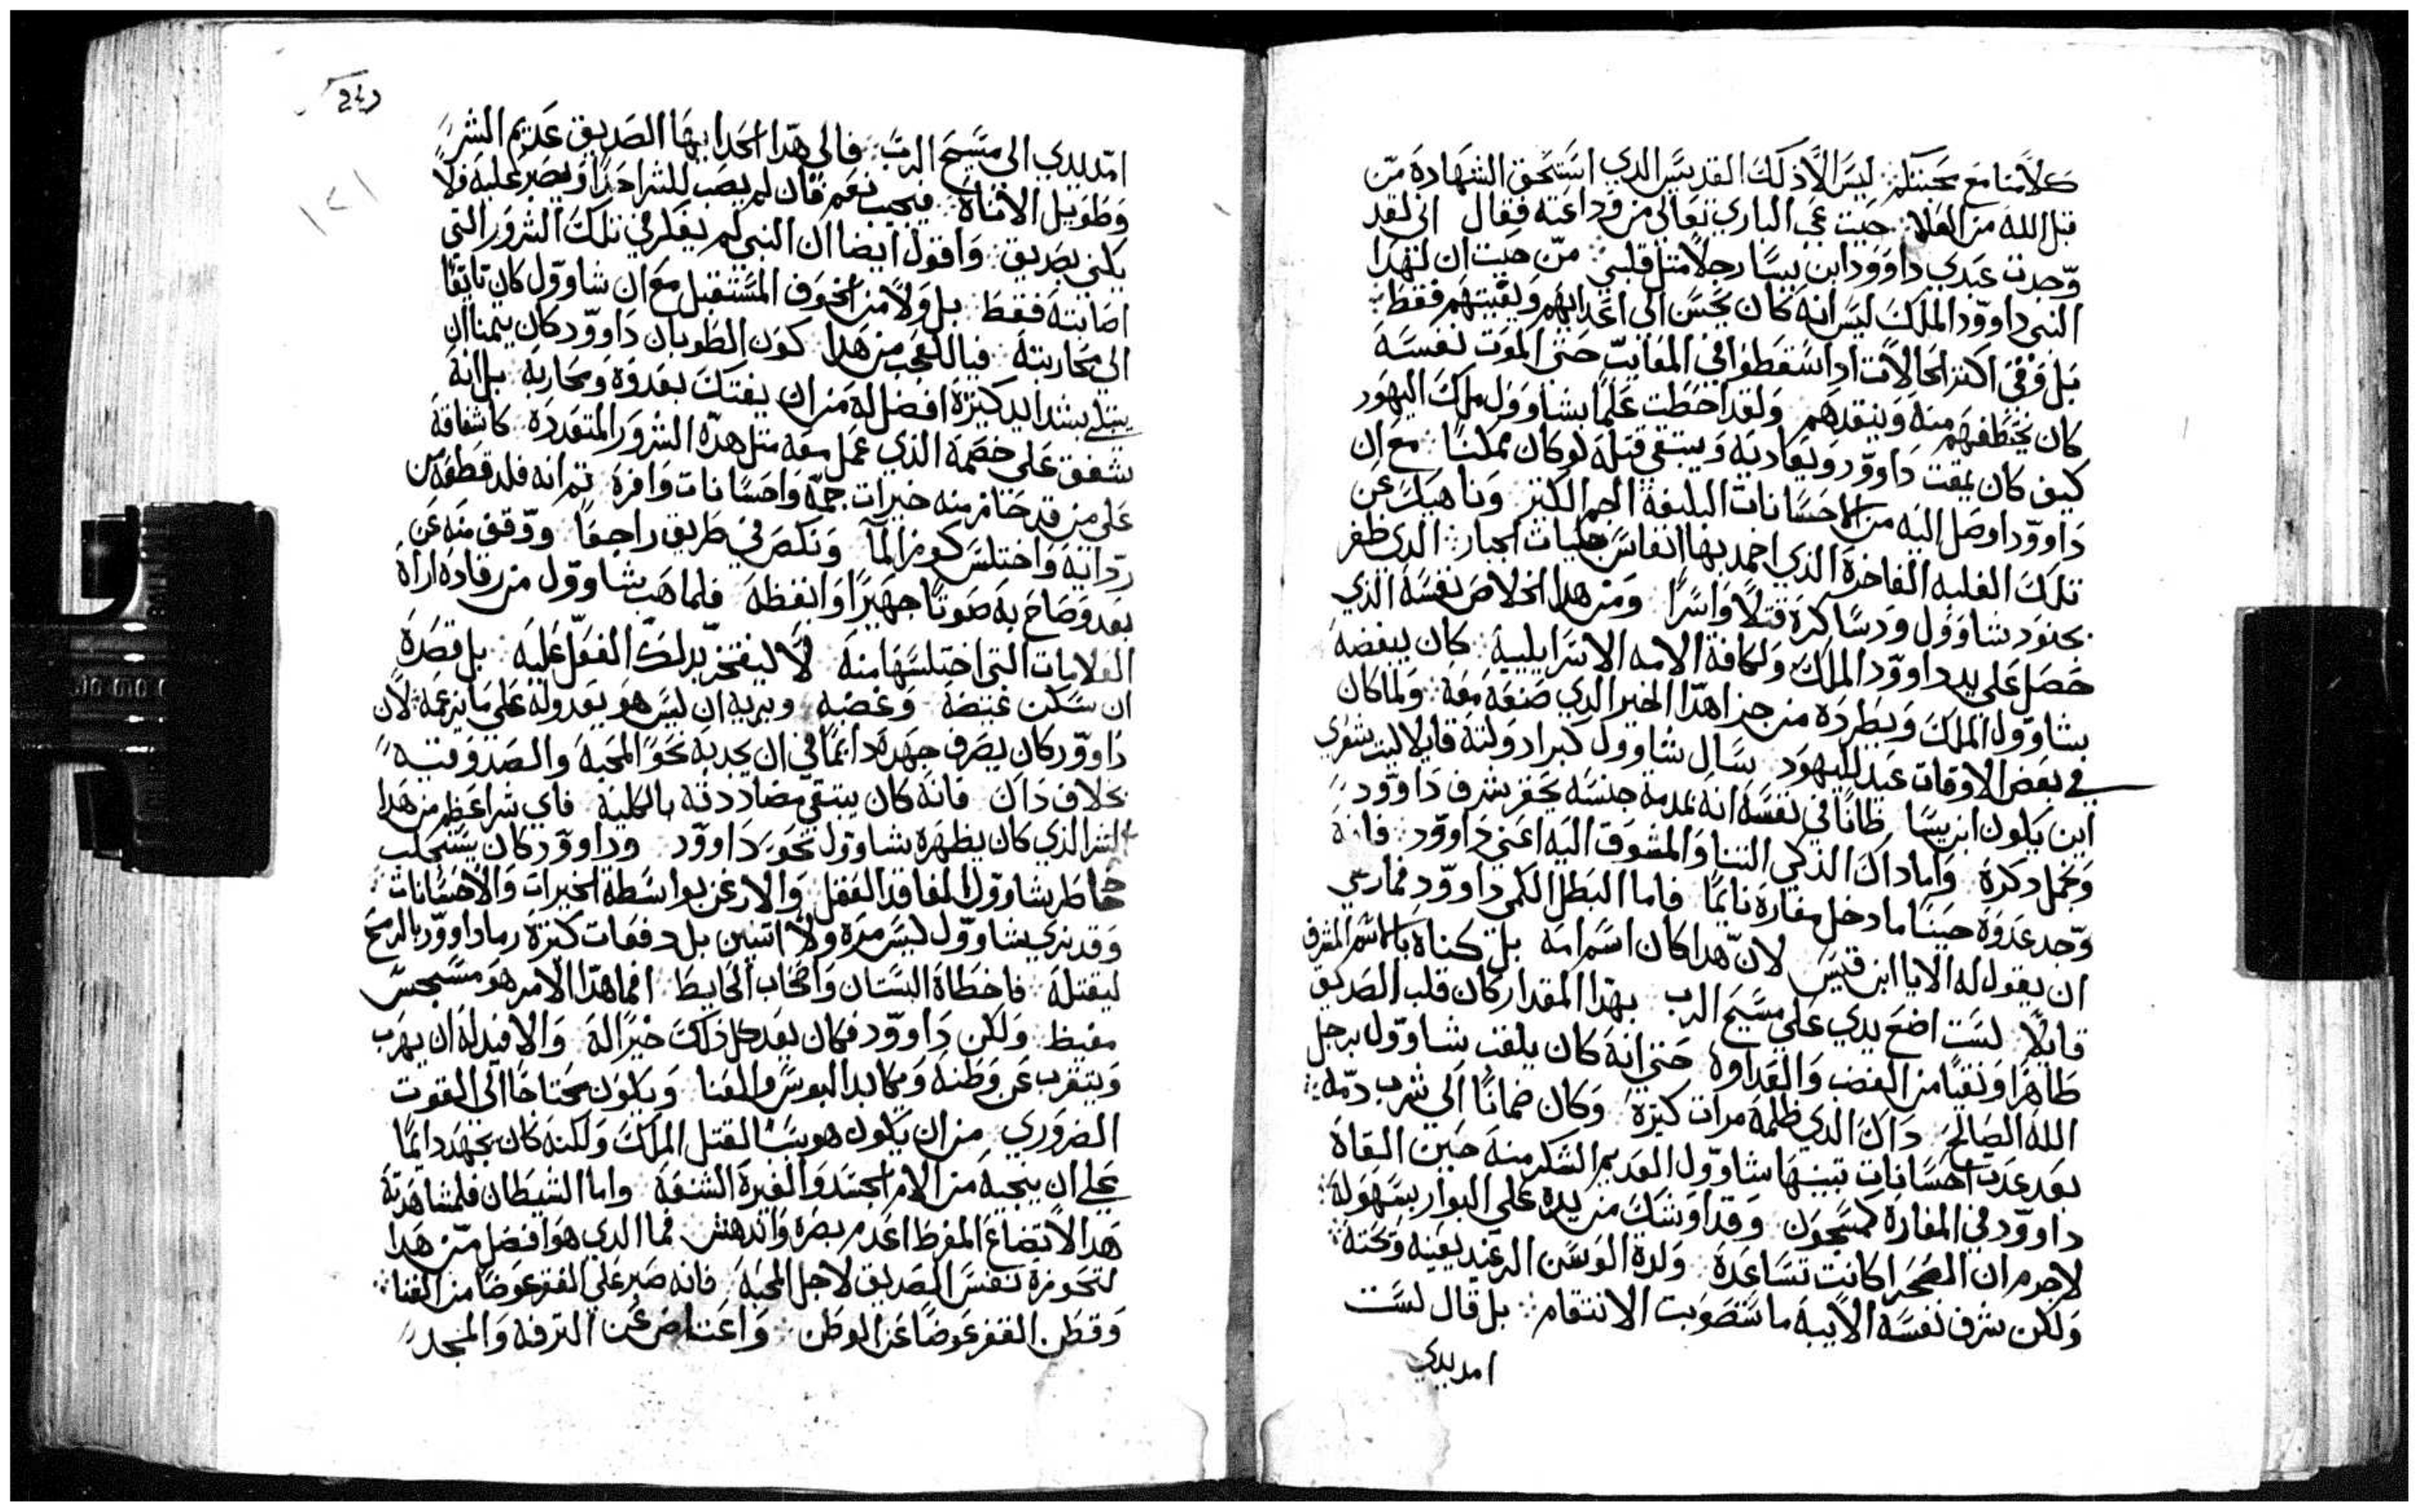 كلامنا مع محبتكم: ليس الا ذلك القديس الدي استحق الشهادة من
قبل الله من العلا: حيت عني الباري تعالى من وداعته فقال اني لقد
وجدت عبدي داوود ابن يسا رجلا متل قلبي: من حيت ان لهدا
النبي داوود الملك ليس انه كان يحسن الى اعدايهم ويغيتهم فقط:
بل وفي اكتر الحالات ادا سقطوا في المغايب حتى الموت نفسه
كان يختطفهم منه وينقدهم ولقد احطت علما بشاوول ملك اليهود
كيف كان يمقت داوود ويعاديه ويبتغي قتله لو كان ممكنا: مع ان
داوود اوصل اليه من الاحسانات البليغه الجم الكتير وناهيك عن
تلك الغلبه الفاخرة الدي احمد بها انفاس جليات الجبار: الدي ظفر
بجنود شاوول ودساكره قتلا واسرا ومن هدا الخلاص نفسه الدي
حصل على يد داوود الملك ولكافة الامه الاسرايلييه: كان يبغضه
شاوول الملك ويطرده من جزا هدا الخير الدي صنعه معه: ولما كان
في بعض الاوقات عيد لليهود سال شاوول كبرا دولته قايلا ليت شعري
اين يكون ابن يسا ظانا في نفسه انه بمدمة جنسه يحقر شرف داوود
ويخمل دكره واما داك الدكي التنا والمشوق اليه اعني داوود: فانه
وجد عدوه حينا ما دخل مغاره نايما فاما البطل الكمي داوود فما رضي
ان يقول له الا يا ابن قيس لان هدا كان اسم امه بل كناه بالاسم المشرف
قايلا لست اضع يدي على مسيح الرب بهدا المقدار كان قلب الصديق
طاهرا ونقيا من الغضب والعداوه حتى انه كان يلقب شاوول برجل
الله الصالح داك الدي ظلمه مرات كتيرة وكان ضمانا الى شرب دمه:
بعد عدت احسانات تبينها شاوول العديم الشكر منه حين القاه
داوود في المغارة كمسجون وقد اوشك من يده على البوار بسهولة:
لاجرم ان الصحرا كانت تساعده ولدة الوسن الرغيد بعينه وتحته:
ولكن شرف نفسه الابيه ما ستصوبت الانتقام: بل قال لست
امد يدي
امد يدي الى مسيح الرب: فالي هدا الحد ايها الصديق عديم الشر
وطويل الاناة: فيجيب نعم فان لم يصب للشر احدا ويصبر عليه فلا
يكني بصديق: واقول ايضا ان النبي لم يفكر في تلك الشرور التي
اصابته فقط: بل ولا من الخوف المستقبل مع ان شاوول كان تايقا
الى محاربته فيا للعجب من هدا كون الطوبان داوود كان يتمنا ان
يبتلي بشدايد كتيرة افضل له من ان يفتك بعدوه ومحاربه بل انه
شفق على خصمه الدي عمل معه متل هده الشرور المتعدده كاشفاقه
على من قد حاز منه خيرات جمة واحسانات وافرة تم انه فلد قطعه من
ردايه واختلس كوز الما ونكص في طريق راجعا ووقف منه عن
بعد وصاح به صوتا جهيرا وايقظه فلما هب شاوول من رقاده اراه
العلامات التي اختلسها منه لا ليفتخر بدلك الفعل عليه بل قصده
ان سكن غيضه وغضبه ويريه ان ليس هو بعدو له على ما يزعمه: لان
داوود كان يصرف جهده دايما في ان يجدبه نحو المحبة والصدوقيه
بخلاف داك فانه كان يبتغي مضاددته بالكليه فاي شر اعظم من هدا
الشر الدي كان يظهره شاوول نحو داوود وداوود كان يستجلب
خاطر شاوول الفاقد العقل والارعن بواسطة الخيرات والاحسانات:
وقد نرى شاوول ليس مره ولا اتنين بل دفعات كتيرة رما داوود بالرمح
ليقتله فاخطاه السنان واصاب الحايط افما هدا الامر هو مسجس
مغيظ ولكن داوود فكان يعد كل داك خيرا له والافيد له ان يهرب
ويتغرب عن وطنه ويكابد البوس والعنا ويكون محتاجا الى القوت
الضروري من ان يكون هو سببا لقتل الملك ولكنه كان يجهد دايما
على ان ينجيه من الام الحسد والغيرة الشنعة واما الشيطان فلمشاهدته
هدا الاتضاع المفرط اعدم بصره واندهش فما الدي هو افضل من هدا
لتحوزه نفس الصديق لاجل المحبة فانه صبر على الفقر عوضا من الغنا:
وقطن القفر عوضا عن الوطن: واعتاض عن الترفه والمجد